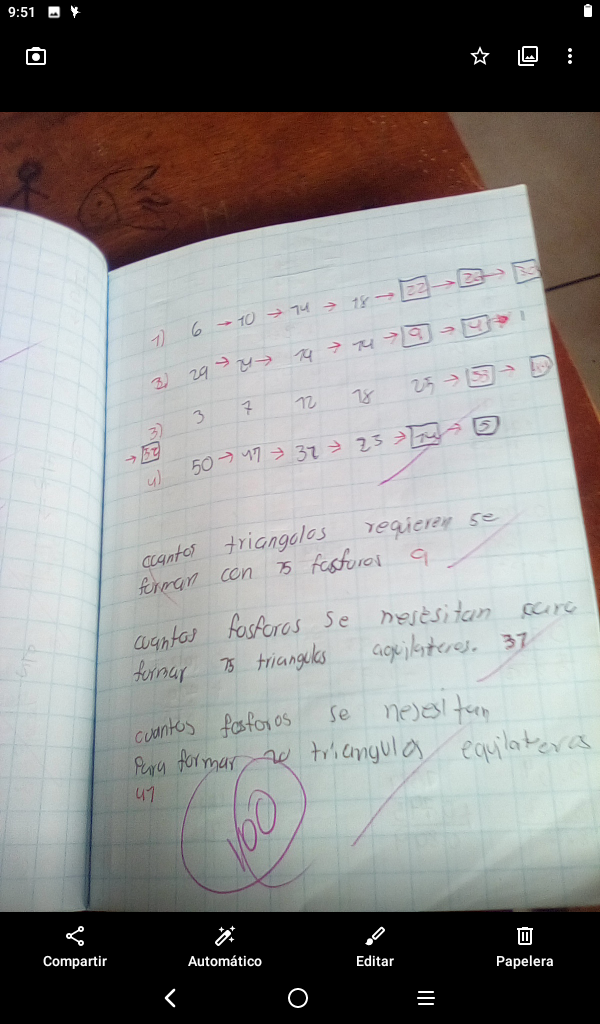 9:51
1) 6 → 10 → 14 → 18 → 22 → 26 → 30
2) 29 → 24 → 19 → 14 → 9 → 4 → 1
3) 3 7 12 18 25 → 33 →
→ 32
4) 50 → 41 → 32 → 23 → 14 → 5
cuantos triangolos requieren se
forman con 15 fosforos 9
cuantos fosforos se nesesitan para
formar 15 triangulos aquilateros. 31
cuantos fosforos se nesesitan
Para formar 20 triangulos equilateros
41
100
Compartir Automático Editar Papelera